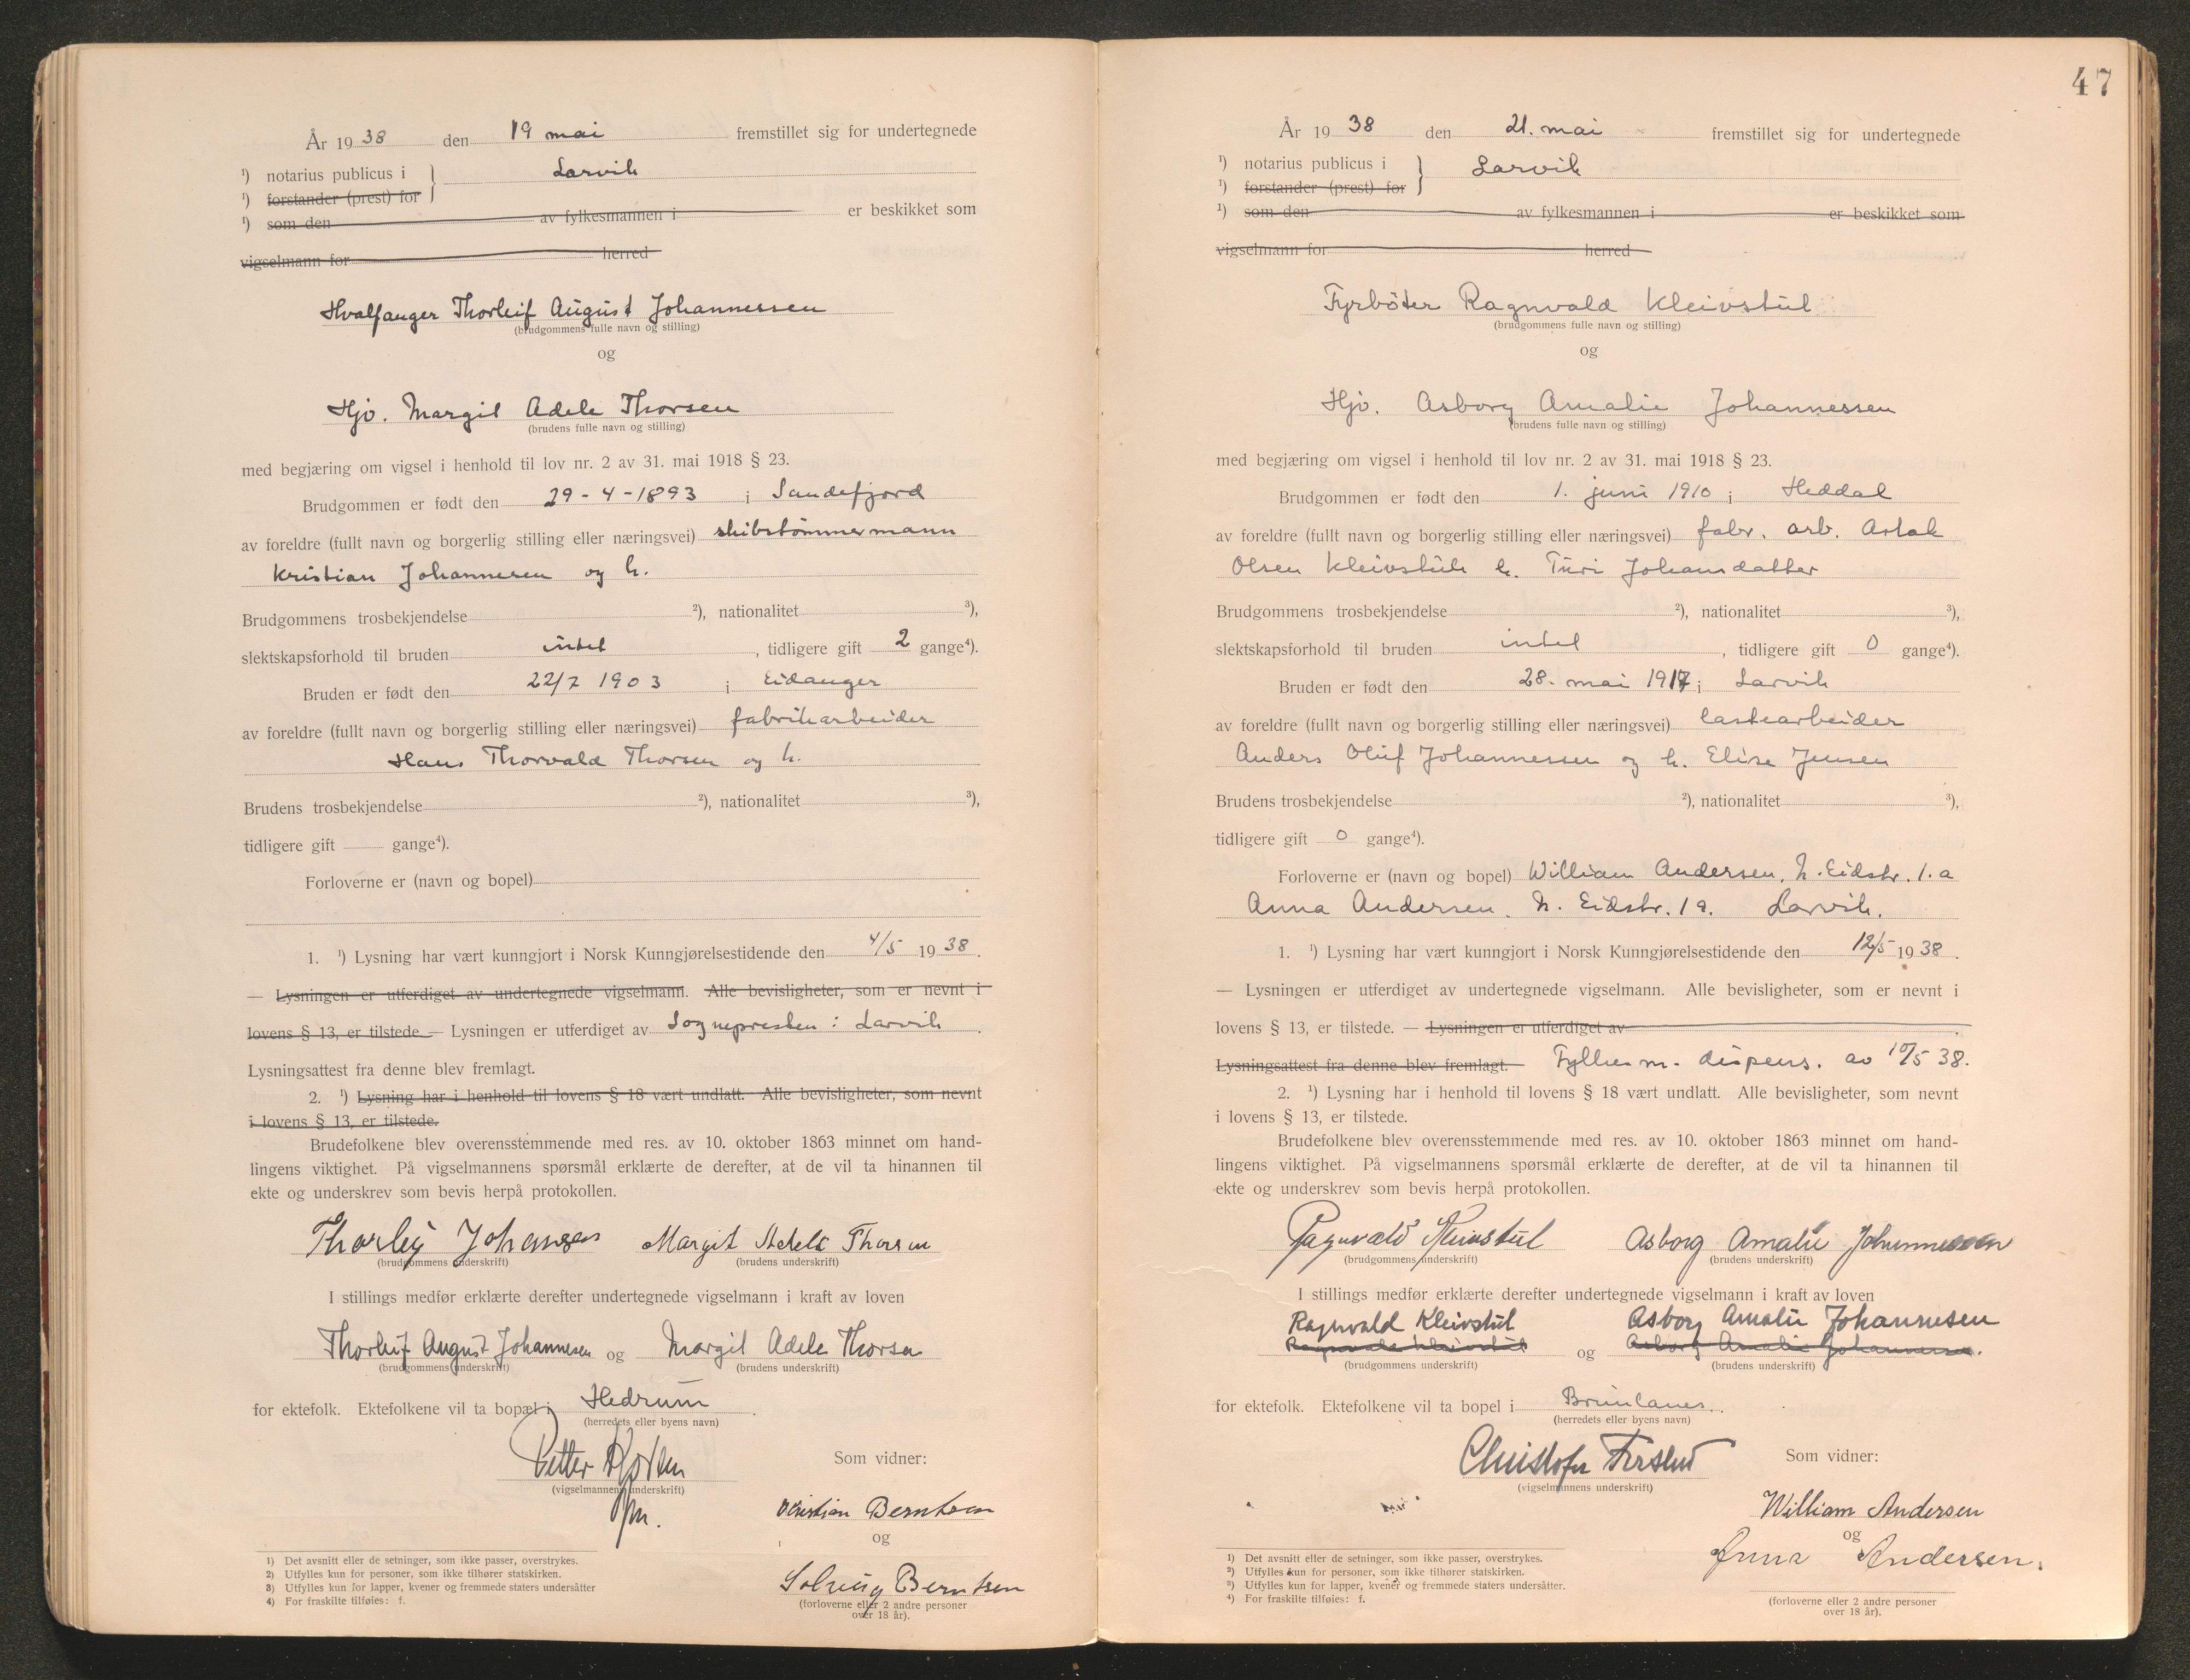 År 19 38 den 19 mai fremstillet sig for undertegnede
¹) notarius publicus i } Larvik
¹) forstander (prest) for
¹) som den av fylkesmannen i er beskikket som
vigselmann for herred
Hvalfanger Thorleif August Johannessen
(brudgommens fulle navn og stilling)
og
Hjv. Margit Adele Thorsen
(brudens fulle navn og stilling)
med begjæring om vigsel i henhold til lov nr. 2 av 31. mai 1918 § 23.
Brudgommen er født den 29-4-1893 i Sandefjord
av foreldre (fullt navn og borgerlig stilling eller næringsvei) skibstømmermann
Kristian Johannesen og h.
Brudgommens trosbekjendelse ²), nationalitet ³),
slektskapsforhold til bruden intet, tidligere gift 2 gange⁴).
Bruden er født den 22/7 1903 i Eidanger
av foreldre (fullt navn og borgerlig stilling eller næringsvei) fabrikarbeider
Hans Thorvald Thorsen og h.
Brudens trosbekjendelse ²), nationalitet ³),
tidligere gift gange⁴).
Forloverne er (navn og bopel)
1. ¹) Lysning har vært kunngjort i Norsk Kunngjørelsestidende den 4/5 19 38.
— Lysningen er utferdiget av undertegnede vigselmann. Alle bevisligheter, som er nevnt i
lovens § 13, er tilstede. — Lysningen er utferdiget av Sognepresten i Larvik.
Lysningsattest fra denne blev fremlagt.
2. ¹) Lysning har i henhold til lovens § 18 vært undlatt. Alle bevisligheter, som nevnt
i lovens § 13, er tilstede.
Brudefolkene blev overensstemmende med res. av 10. oktober 1863 minnet om hand-
lingens viktighet. På vigselmannens spørsmål erklærte de derefter, at de vil ta hinannen til
ekte og underskrev som bevis herpå protokollen.
Thorleif Johansen Margit Adele Thorsen
(brudgommens underskrift) (brudens underskrift)
I stillings medfør erklærte derefter undertegnede vigselmann i kraft av loven
Thorleif August Johannesen og Margit Adele Thorsen
(brudgommens underskrift) (brudens underskrift)
for ektefolk. Ektefolkene vil ta bopæl i Hedrum.
(herredets eller byens navn)
Petter
(vigselmannens underskrift)
Som vidner:
Kristian Berntsen
og
Solveig Berntsen
(forloverne eller 2 andre personer
over 18 år).
1) Det avsnitt eller de setninger, som ikke passer, overstrykes.
2) Utfylles kun for personer, som ikke tilhører statskirken.
3) Utfylles kun for lapper, kvener og fremmede staters undersåtter
4) For fraskilte tilføies: f.
47
År 19 38 den 21. mai fremstillet sig for undertegnede
¹) notarius publicus i } Larvik
¹) forstander (prest) for
¹) som den av fylkesmannen i er beskikket som
vigselmann for herred
Fyrbøter Ragnvald Kleivstul
(brudgommens fulle navn og stilling)
og
Hjv. Asborg Amalie Johannessen
(brudens fulle navn og stilling)
med begjæring om vigsel i henhold til lov nr. 2 av 31. mai 1918 § 23.
Brudgommen er født den 1. juni 1910 i Heddal
av foreldre (fullt navn og borgerlig stilling eller næringsvei) fabr. arb. Aslak
Olsen Kleivstul h. Turi Johansdatter
Brudgommens trosbekjendelse ²), nationalitet ³),
slektskapsforhold til bruden intet, tidligere gift 0 gange⁴).
Bruden er født den 28. mai 1917 i Larvik
av foreldre (fullt navn og borgerlig stilling eller næringsvei) lastearbeider
Anders Oluf Johannessen og h. Elise Jensen
Brudens trosbekjendelse ²), nationalitet ³),
tidligere gift 0 gange⁴).
Forloverne er (navn og bopel) William Andersen, N. Eidstr. 1.a
Anna Andersen, N. Eidstr. 1a. Larvik.
1. ¹) Lysning har vært kunngjort i Norsk Kunngjørelsestidende den 12/5 19 38.
— Lysningen er utferdiget av undertegnede vigselmann. Alle bevisligheter, som er nevnt i
lovens § 13, er tilstede. — Lysningen er utferdiget av .
Lysningsattest fra denne blev fremlagt. Fylkesm. dispens. av 10/5 38.
2. ¹) Lysning har i henhold til lovens § 18 vært undlatt. Alle bevisligheter, som nevnt
i lovens § 13, er tilstede.
Brudefolkene blev overensstemmende med res. av 10. oktober 1863 minnet om hand-
lingens viktighet. På vigselmannens spørsmål erklærte de derefter, at de vil ta hinannen til
ekte og underskrev som bevis herpå protokollen.
Ragnvald Kleivstul Asborg Amalie Johannessen
(brudgommens underskrift) (brudens underskrift)
I stillings medfør erklærte derefter undertegnede vigselmann i kraft av loven
Ragnvald Kleivstul Asborg Amalie Johannesen
Ragnvald Kleivstul og Asborg Amalie Johannessen.
(brudgommens underskrift) (brudens underskrift)
for ektefolk. Ektefolkene vil ta bopel i Brunlanes.
(herredets eller byens navn)
Christofer
(vigselmannens underskrift)
Som vidner:
William Andersen
og
Anna Andersen.
(forloverne eller 2 andre personer
over 18 år).
1) Det avsnitt eller de setninger, som ikke passer, overstrykes.
2) Utfylles kun for personer, som ikke tilhører statskirken.
3) Utfylles kun for lapper, kvener og fremmede staters undersåtter.
4) For fraskilte tilføies: f.